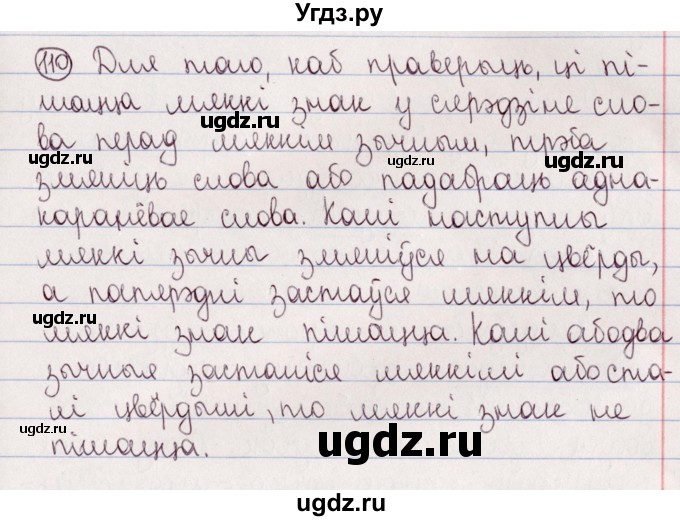 Угдз.ру
110 Для таго, каб праверыць, ці пі-
шацца мяккі знак у сярэдзіне сло-
ва перад мяккім зычным, трэба
змяніць слова або падабраць адна-
каранёвае слова. Калі наступны
мяккі зычны змяніўся на цвёрды,
а папярэдні застаўся мяккім, то
мяккі знак пішацца. Калі абодва
зычныя засталіся мяккімі або ста-
лі цвёрдымі, то мяккі знак не
пішацца.
ugdz.ru
ugdz.ru
ugdz.ru
ugdz.ru
ugdz.ru
ugdz.ru
ugdz.ru
ugdz.ru
ugdz.ru